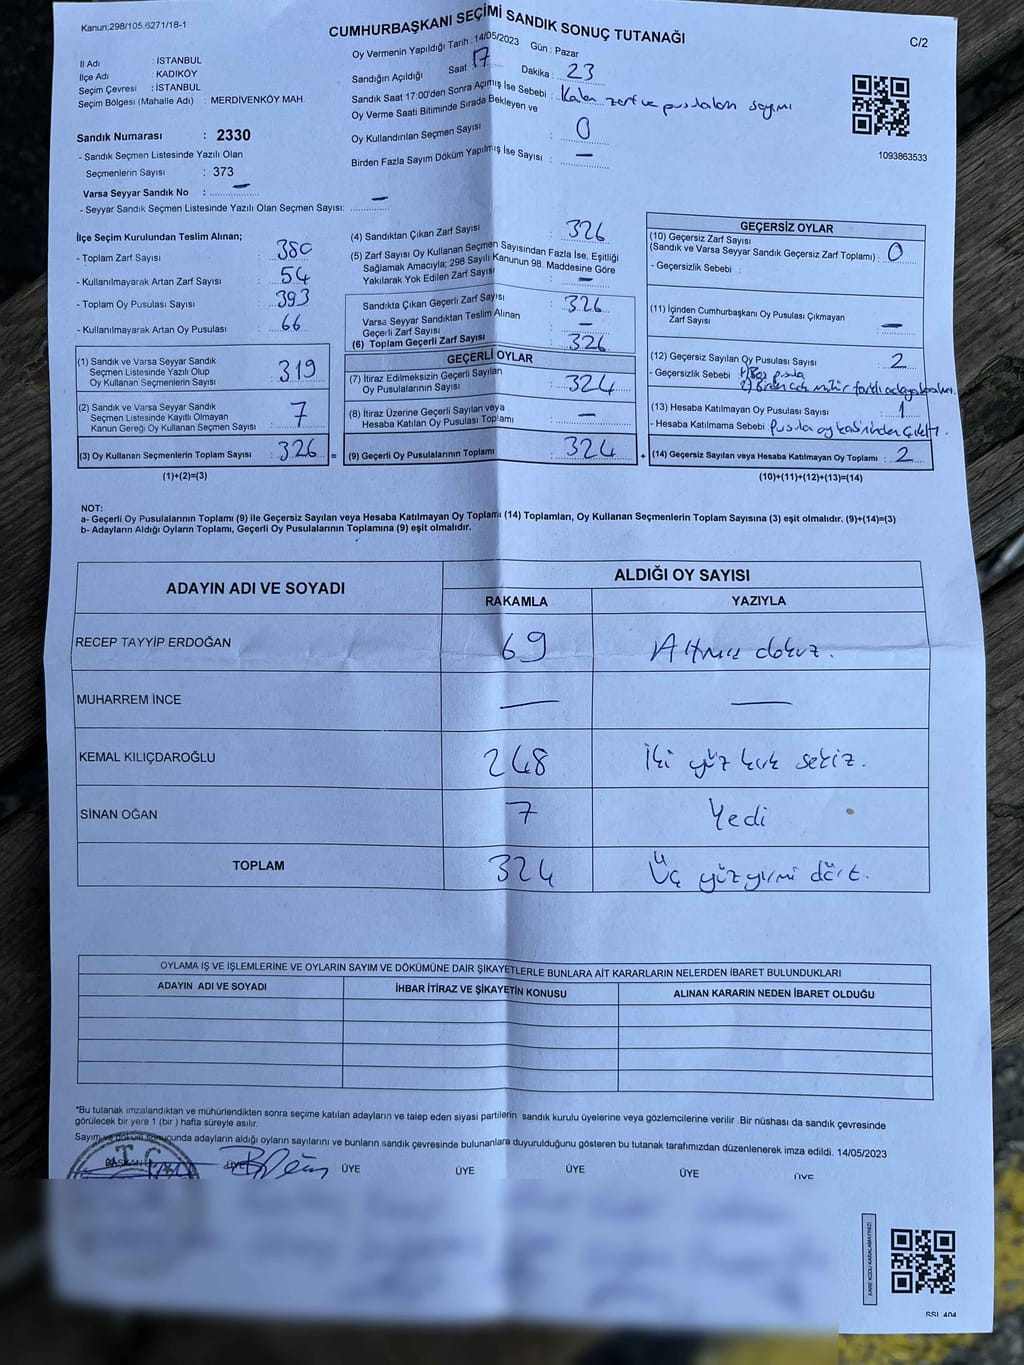 Kanun:298/105.6271/18-1
CUMHURBAŞKANI SEÇİMİ SANDIK SONUÇ TUTANAĞI
C/2
İl Adı : İSTANBUL
İlçe Adı : KADIKÖY
Seçim Çevresi : İSTANBUL
Seçim Bölgesi (Mahalle Adı) : MERDİVENKÖY MAH.
Sandık Numarası : 2330
- Sandık Seçmen Listesinde Yazılı Olan
Seçmenlerin Sayısı : 373
Varsa Seyyar Sandık No : —
- Seyyar Sandık Seçmen Listesinde Yazılı Olan Seçmen Sayısı: —
Oy Vermenin Yapıldığı Tarih : 14/05/2023 Gün : Pazar
Sandığın Açıldığı Saat 17 Dakika : 23
Sandık Saat 17:00'den Sonra Açılmış İse Sebebi : Kalan zarf ve pusulaların sayımı
Oy Verme Saati Bitiminde Sırada Bekleyen ve
Oy Kullandırılan Seçmen Sayısı : 0
Birden Fazla Sayım Döküm Yapılmış İse Sayısı : —
1093863533
İlçe Seçim Kurulundan Teslim Alınan;
- Toplam Zarf Sayısı : 380
- Kullanılmayarak Artan Zarf Sayısı : 54
- Toplam Oy Pusulası Sayısı : 393
- Kullanılmayarak Artan Oy Pusulası : 66
(1) Sandık ve Varsa Seyyar Sandık
Seçmen Listesinde Yazılı Olup
Oy Kullanan Seçmenlerin Sayısı : 319
(2) Sandık ve Varsa Seyyar Sandık
Seçmen Listesinde Kayıtlı Olmayan
Kanun Gereği Oy Kullanan Seçmen Sayısı : 7
(3) Oy Kullanan Seçmenlerin Toplam Sayısı : 326 =
(1)+(2)=(3)
(4) Sandıktan Çıkan Zarf Sayısı : 326
(5) Zarf Sayısı Oy Kullanan Seçmen Sayısından Fazla İse, Eşitliği
Sağlamak Amacıyla; 298 Sayılı Kanunun 98. Maddesine Göre
Yakılarak Yok Edilen Zarf Sayısı : —
Sandıkta Çıkan Geçerli Zarf Sayısı : 326
Varsa Seyyar Sandıktan Teslim Alınan
Geçerli Zarf Sayısı : —
(6) Toplam Geçerli Zarf Sayısı : 326
GEÇERLİ OYLAR
(7) İtiraz Edilmeksizin Geçerli Sayılan
Oy Pusulalarının Sayısı : 324
(8) İtiraz Üzerine Geçerli Sayılan veya
Hesaba Katılan Oy Pusulası Toplamı : —
(9) Geçerli Oy Pusulalarının Toplamı : 324 +
GEÇERSİZ OYLAR
(10) Geçersiz Zarf Sayısı
(Sandık ve Varsa Seyyar Sandık Geçersiz Zarf Toplamı) : 0
- Geçersizlik Sebebi :
(11) İçinden Cumhurbaşkanı Oy Pusulası Çıkmayan
Zarf Sayısı : —
(12) Geçersiz Sayılan Oy Pusulası Sayısı : 2
- Geçersizlik Sebebi : 1) Boş pusula
2) Birden çok mühür farklı adaya basılmış.
(13) Hesaba Katılmayan Oy Pusulası Sayısı : 1
- Hesaba Katılmama Sebebi : Pusula oy kabininden çıktı.
(14) Geçersiz Sayılan veya Hesaba Katılmayan Oy Toplamı : 2
(10)+(11)+(12)+(13)=(14)
NOT:
a- Geçerli Oy Pusulalarının Toplamı (9) ile Geçersiz Sayılan veya Hesaba Katılmayan Oy Toplamı (14) Toplamları, Oy Kullanan Seçmenlerin Toplam Sayısına (3) eşit olmalıdır. (9)+(14)=(3)
b- Adayların Aldığı Oyların Toplamı, Geçerli Oy Pusulalarının Toplamına (9) eşit olmalıdır.
ADAYIN ADI VE SOYADI
ALDIĞI OY SAYISI
RAKAMLA YAZIYLA
RECEP TAYYİP ERDOĞAN 69 Altmış dokuz.
MUHARREM İNCE — —
KEMAL KILIÇDAROĞLU 248 İki yüz kırk sekiz.
SİNAN OĞAN 7 Yedi
TOPLAM 324 Üç yüz yirmi dört.
OYLAMA İŞ VE İŞLEMLERİNE VE OYLARIN SAYIM VE DÖKÜMÜNE DAİR ŞİKAYETLERLE BUNLARA AİT KARARLARIN NELERDEN İBARET BULUNDUKLARI
ADAYIN ADI VE SOYADI İHBAR İTİRAZ VE ŞİKAYETİN KONUSU ALINAN KARARIN NEDEN İBARET OLDUĞU
*Bu tutanak imzalandıktan ve mühürlendikten sonra seçime katılan adayların ve talep eden siyasi partilerin sandık kurulu üyelerine veya gözlemcilerine verilir .Bir nüshası da sandık çevresinde
görülecek bir yere 1 (bir ) hafta süreyle asılır.
Sayım ve döküm sonucunda adayların aldığı oyların sayılarını ve bunların sandık çevresinde bulunanlara duyurulduğunu gösteren bu tutanak tarafımızdan düzenlenerek imza edildi. 14/05/2023
T.C.
BAŞKAN ÜYE ÜYE ÜYE ÜYE ÜYE
KARE KODU KARALAMAYINIZ!
SSİ 404